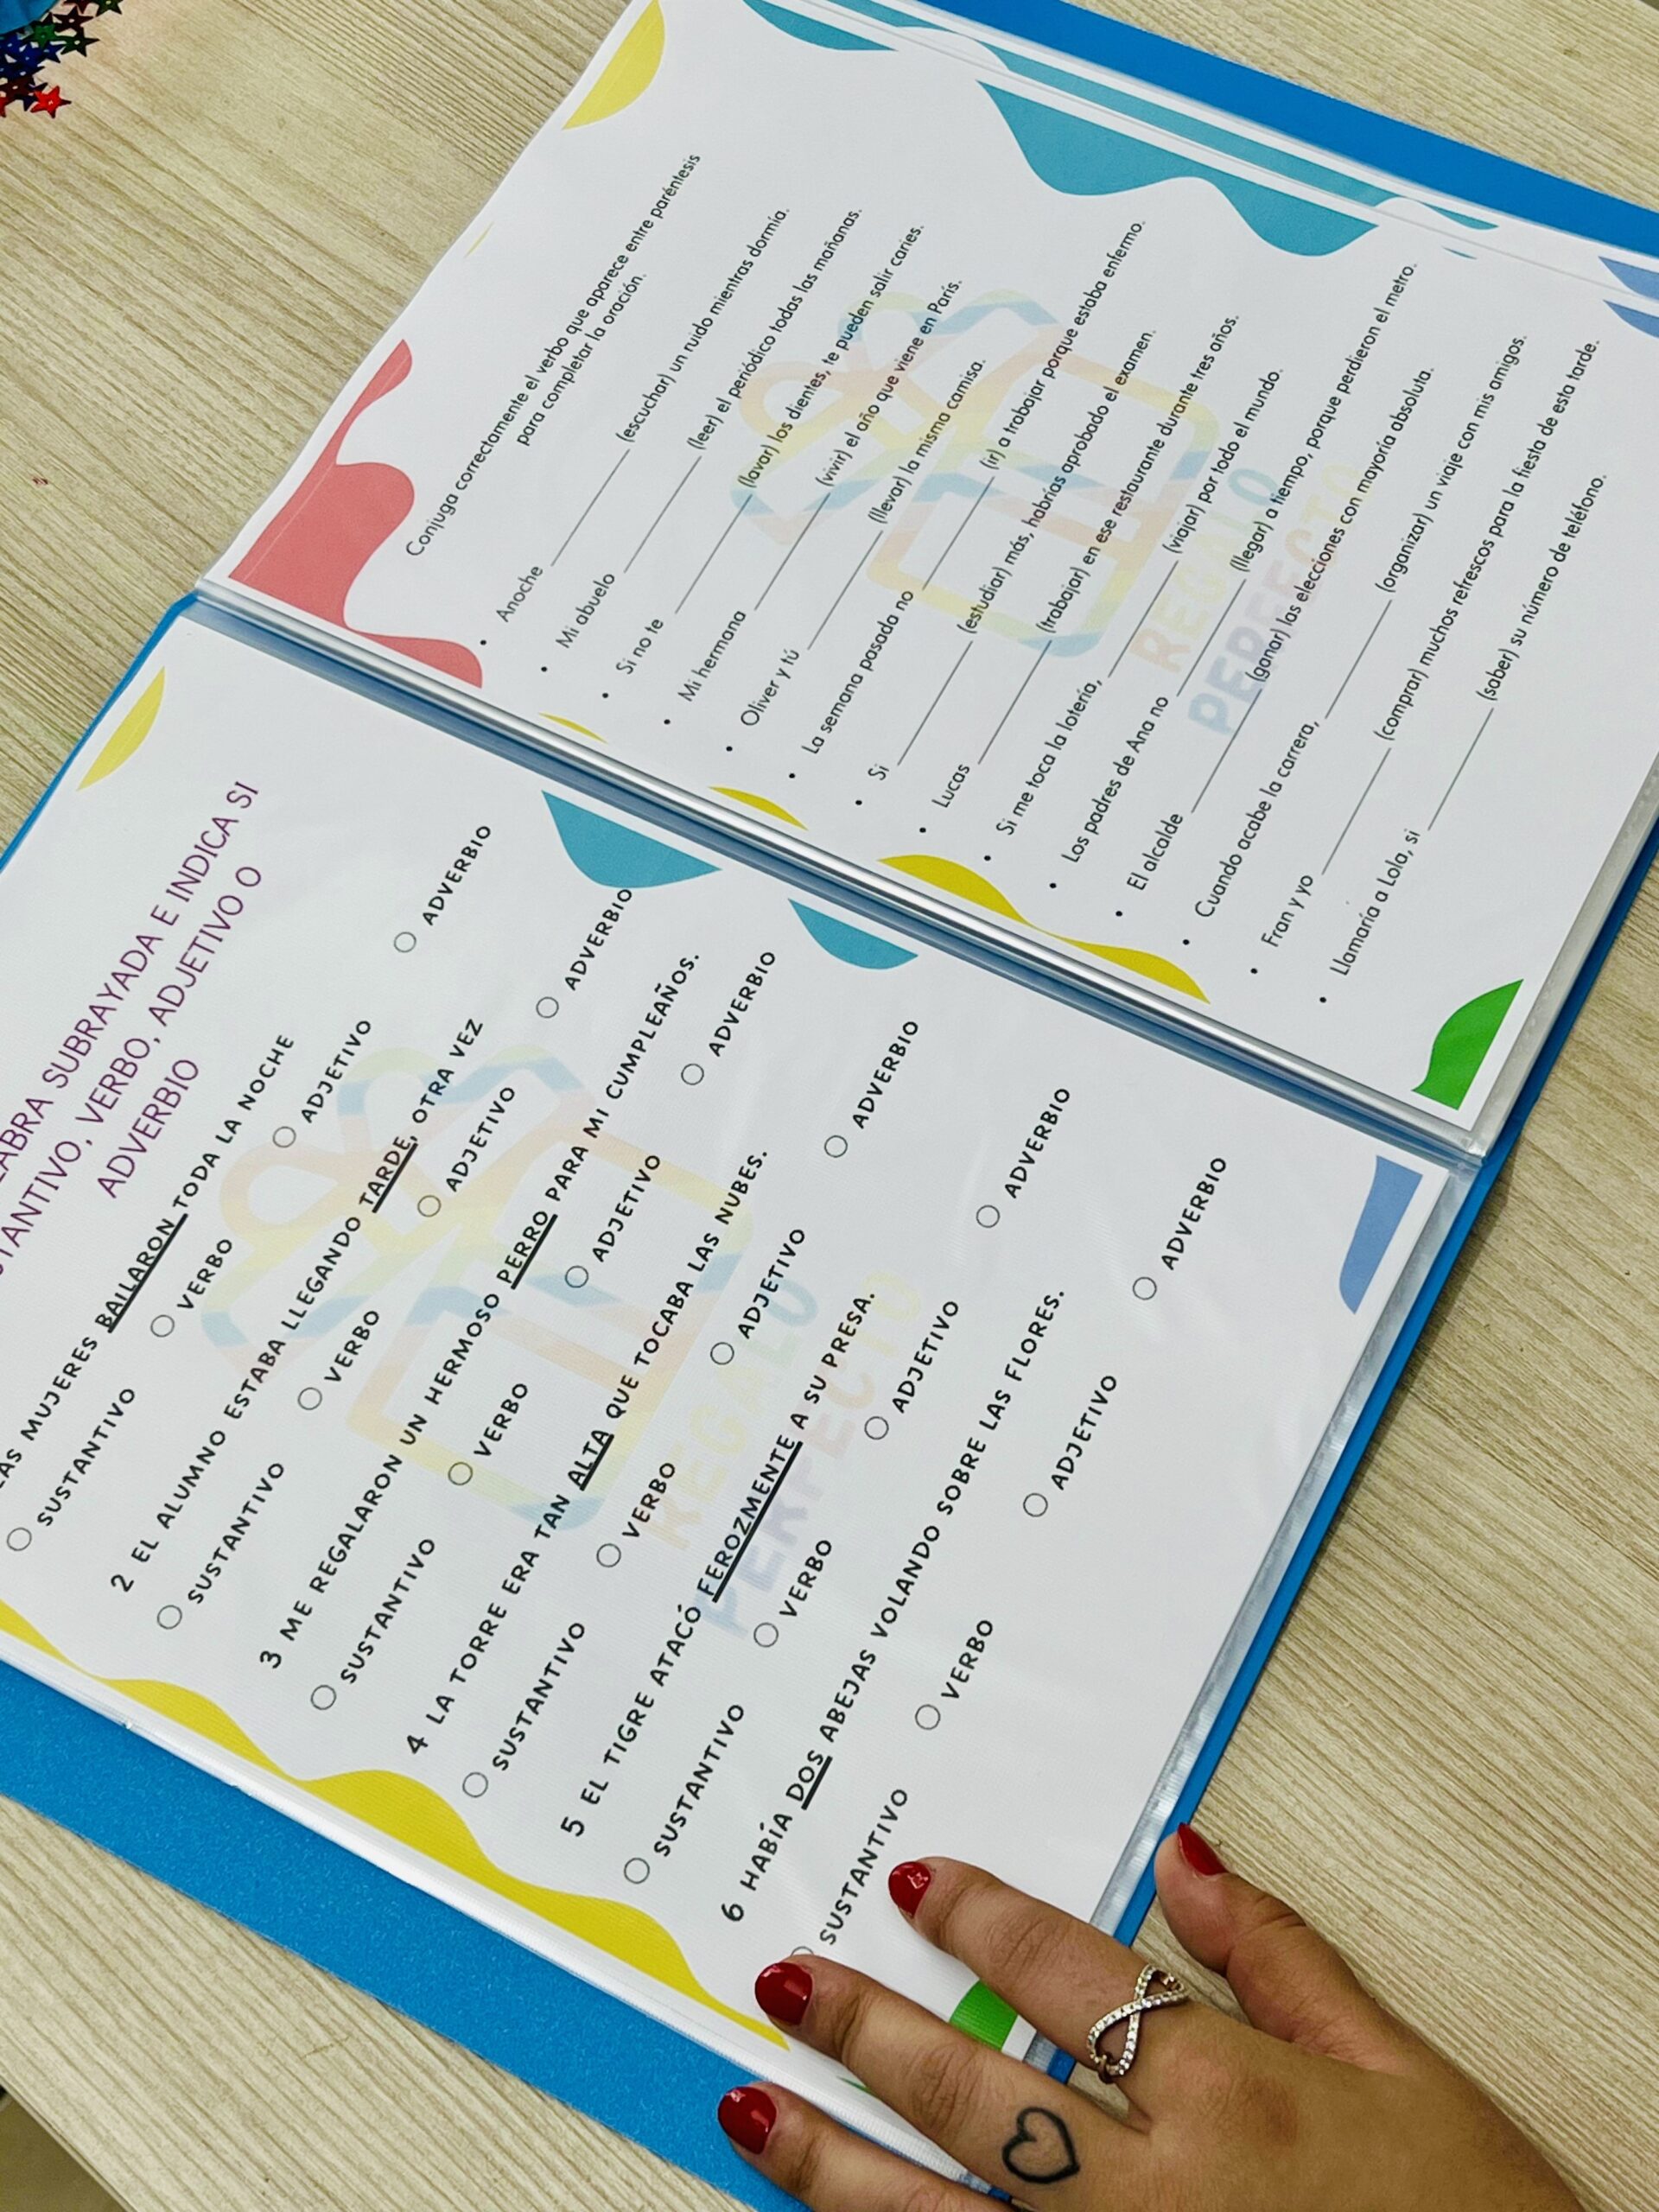 ABRA SUBRAYADA E INDICA SI
TANTIVO, VERBO, ADJETIVO O
ADVERBIO
AS MUJERES BAILARON TODA LA NOCHE
SUSTANTIVO VERBO ADJETIVO ADVERBIO
2 EL ALUMNO ESTABA LLEGANDO TARDE, OTRA VEZ
SUSTANTIVO VERBO ADJETIVO ADVERBIO
3 ME REGALARON UN HERMOSO PERRO PARA MI CUMPLEAÑOS.
SUSTANTIVO VERBO ADJETIVO ADVERBIO
4 LA TORRE ERA TAN ALTA QUE TOCABA LAS NUBES.
SUSTANTIVO VERBO ADJETIVO ADVERBIO
5 EL TIGRE ATACÓ FEROZMENTE A SU PRESA.
SUSTANTIVO VERBO ADJETIVO ADVERBIO
6 HABÍA DOS ABEJAS VOLANDO SOBRE LAS FLORES.
SUSTANTIVO VERBO ADJETIVO ADVERBIO
REGALO
PERFECTO
Conjuga correctamente el verbo que aparece entre paréntesis
para completar la oración.
• Anoche ________ (escuchar) un ruido mientras dormía.
• Mi abuelo ________ (leer) el periódico todas las mañanas.
• Si no te ________ (lavar) los dientes, te pueden salir caries.
• Mi hermana ________ (vivir) el año que viene en París.
• Oliver y tú ________ (llevar) la misma camisa.
• La semana pasada no ________ (ir) a trabajar porque estaba enfermo.
• Si ________ (estudiar) más, habrías aprobado el examen.
• Lucas ________ (trabajar) en ese restaurante durante tres años.
• Si me toca la lotería, ________ (viajar) por todo el mundo.
• Los padres de Ana no ________ (llegar) a tiempo, porque perdieron el metro.
• El alcalde ________ (ganar) las elecciones con mayoría absoluta.
• Cuando acabe la carrera, ________ (organizar) un viaje con mis amigos.
• Fran y yo ________ (comprar) muchos refrescos para la fiesta de esta tarde.
• Llamaría a Lola, si ________ (saber) su número de teléfono.
REGALO
PERFECTO